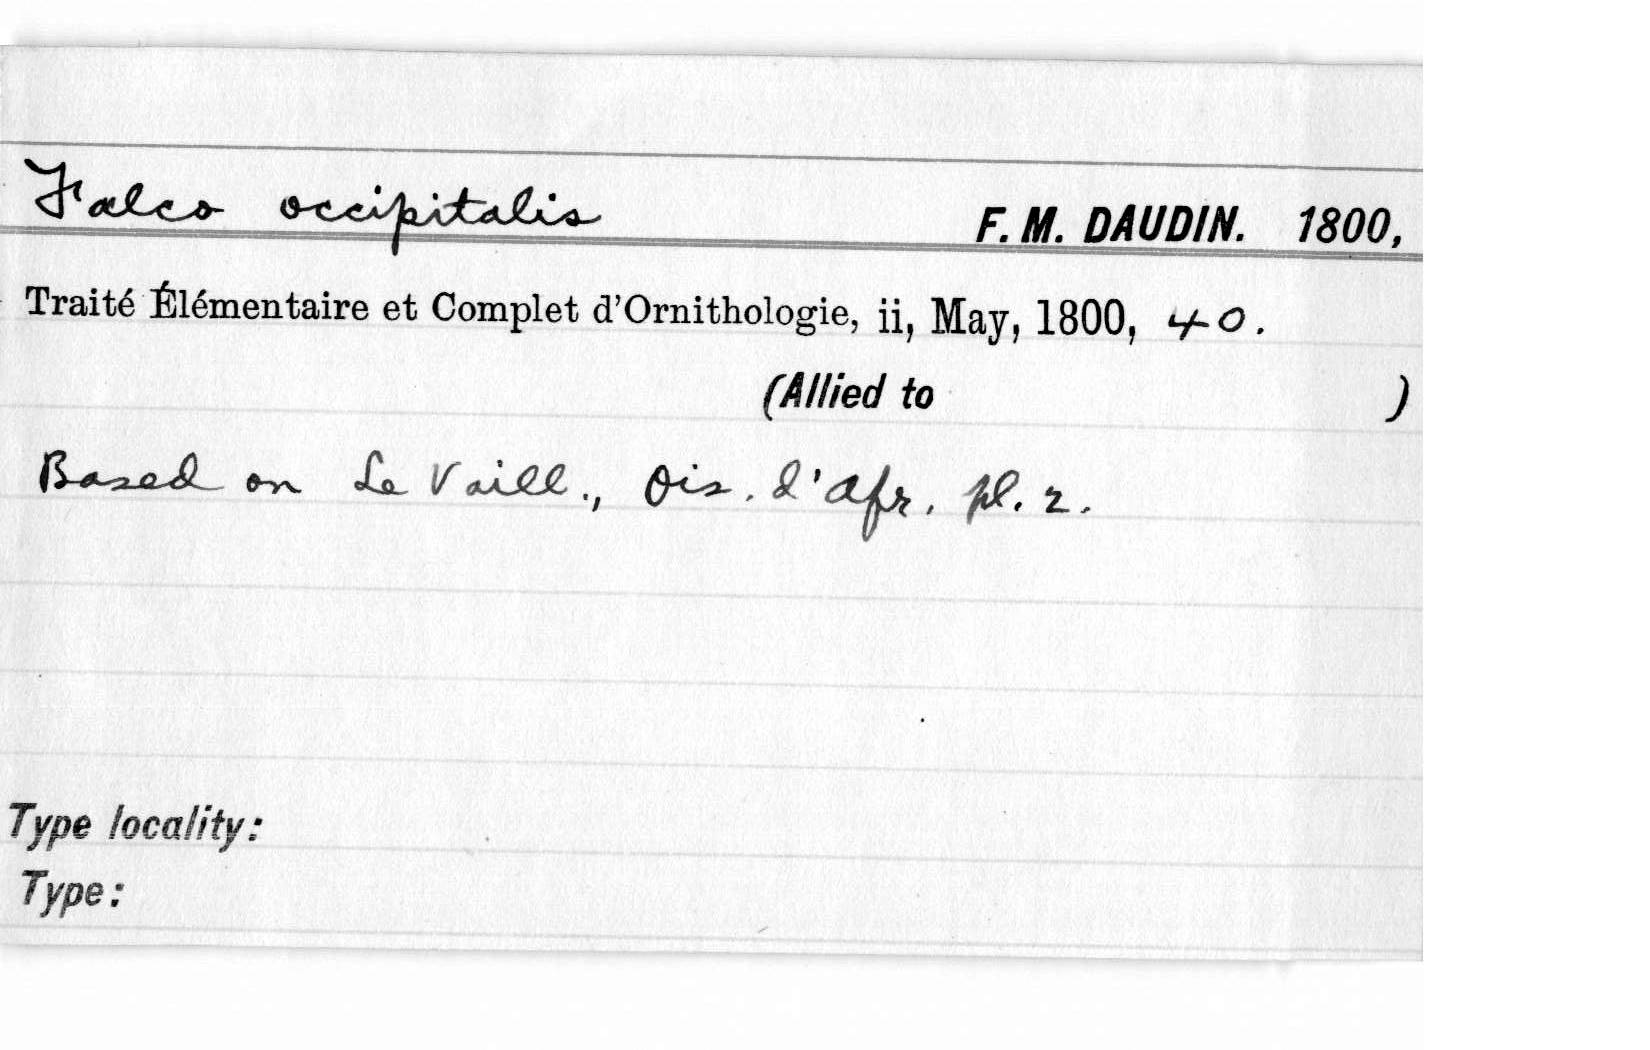 Falco occipitalis F. M. DAUDIN. 1800,
Traité Élémentaire et Complet d'Ornithologie, ii, May, 1800, 40.
(Allied to )
Based on Le Vaill., Ois. d'Afr. pl. 2.
Type locality:
Type: